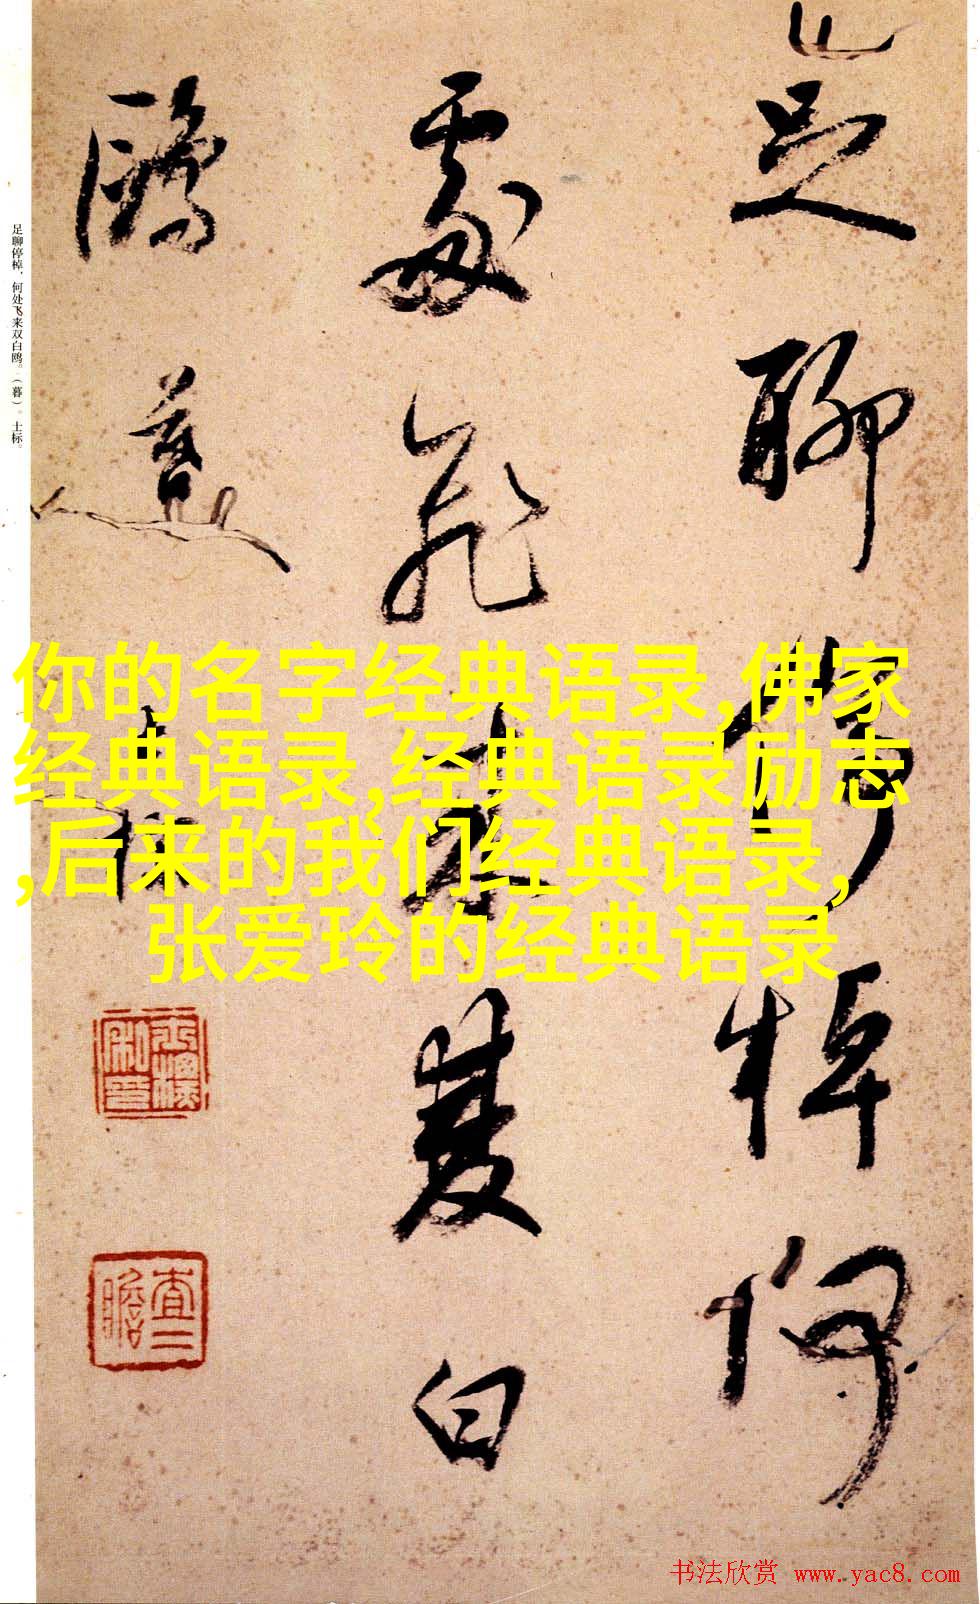 足聊停棹何
處飛来雙白
鷗 暮 士标
足聊停棹，何处飞来双白鸥。（暮）。士标。
你的名字经典语录,佛家
经典语录,经典语录励志
,后来的我们经典语录,
张爱玲的经典语录
查二
瞻
书法欣赏 www.yac8.com